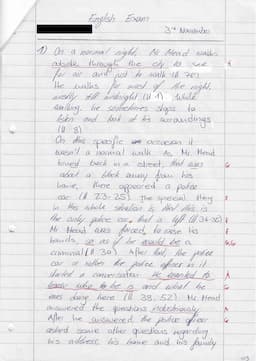 English Exam
3rd November
1) On a normal night, Mr Mead walks
outside through the city to
for air and just to walk (ll 76).
He walks for most of the night,
mostly till midnight (ll 1). While
walking, he sometimes stops to
listen and look at his surroundings
(ll 8).
On this specific occasion it
wasn't a normal walk. As Mr Mead
turned back in a street, that was
about a block away from his
home, there appeared a police
car (ll 23-25). The special thing
in this whole situation is that this is
the only police car that is left (ll 34-36)
Mr Mead was forced to raise his
hands, as if he would be a
criminal (ll 30). After that, the police
car or rather the police officer in it
started a conversation. He wanted to
know who he is and what he
was doing here (ll 38, 52). Mr Mead
answered the questions
After he answered, the police officer
asked some other questions regarding
his address, his home and his family